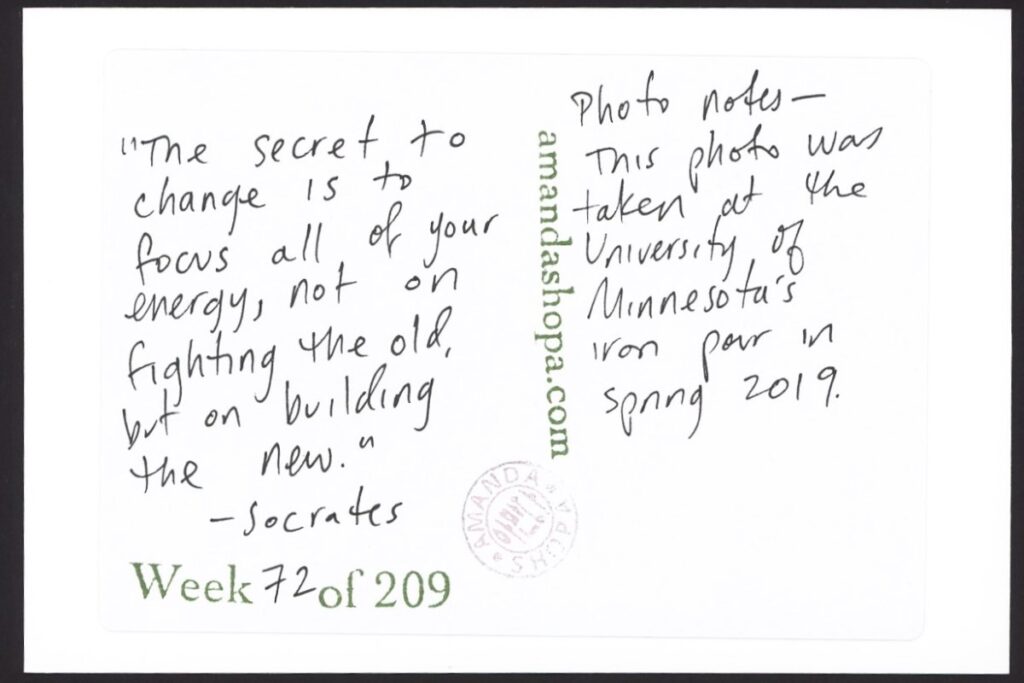 "The secret to
change is to
focus all of your
energy, not on
fighting the old,
but on building
the new."
-Socrates
Week 72 of 209
amandashopa.com
Photo notes—
This photo was
taken at the
University of
Minnesota's
iron pour in
spring 2019.
AMANDA * SHOPA *